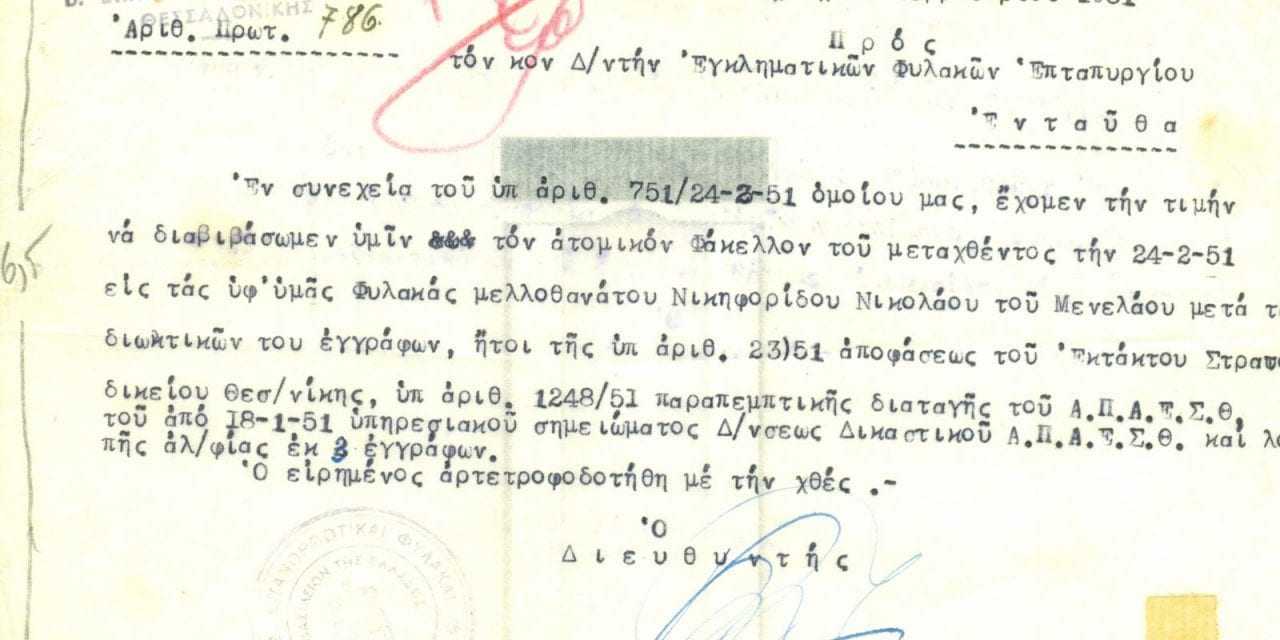 ΘΕΣΣΑΛΟΝΙΚΗΣ
Ἀριθ. Πρωτ. 786.
Π ρ ό ς
τόν κον Δ/ντήν Ἐγκληματικῶν Φυλακῶν Ἑπταπυργίου
Ἐ ν τ α ῦ θ α
Ἐν συνεχεία τοῦ ὑπ ἀριθ. 751/24-2-51 ὁμοίου μας, ἔχομεν τήν τιμήν
νά διαβιβάσωμεν ὑμῖν τόν ἀτομικόν Φάκελλον τοῦ μεταχθέντος τήν 24-2-51
εἰς τάς ὑφ'ὑμᾶς Φυλακάς μελλοθανάτου Νικηφορίδου Νικολάου τοῦ Μενελάου μετά
διωκτικῶν του ἐγγράφων, ἤτοι τῆς ὑπ ἀριθ. 23)51 ἀποφάσεως τοῦ Ἐκτάκτου
δικείου Θεσ/νίκης, ὑπ ἀριθ. 1248/51 παραπεμπτικῆς διαταγῆς τοῦ Α.Π.Α.Ε.Σ.Θ,
τοῦ ἀπό 18-1-51 ὑπηρεσιακοῦ σημειώματος Δ/νσεως Δικαστικοῦ Α.Π.Α.Ε.Σ.Θ. καί
πῆς ἀλ/φίας ἐκ 3 ἐγγράφων.
Ὁ εἰρημένος ἀρτετροφοδοτήθη μέ τήν χθές .-
Ὁ
Δ ι ε υ θ υ ν τ ή ς
ΦΥΛΑΚΑΙ